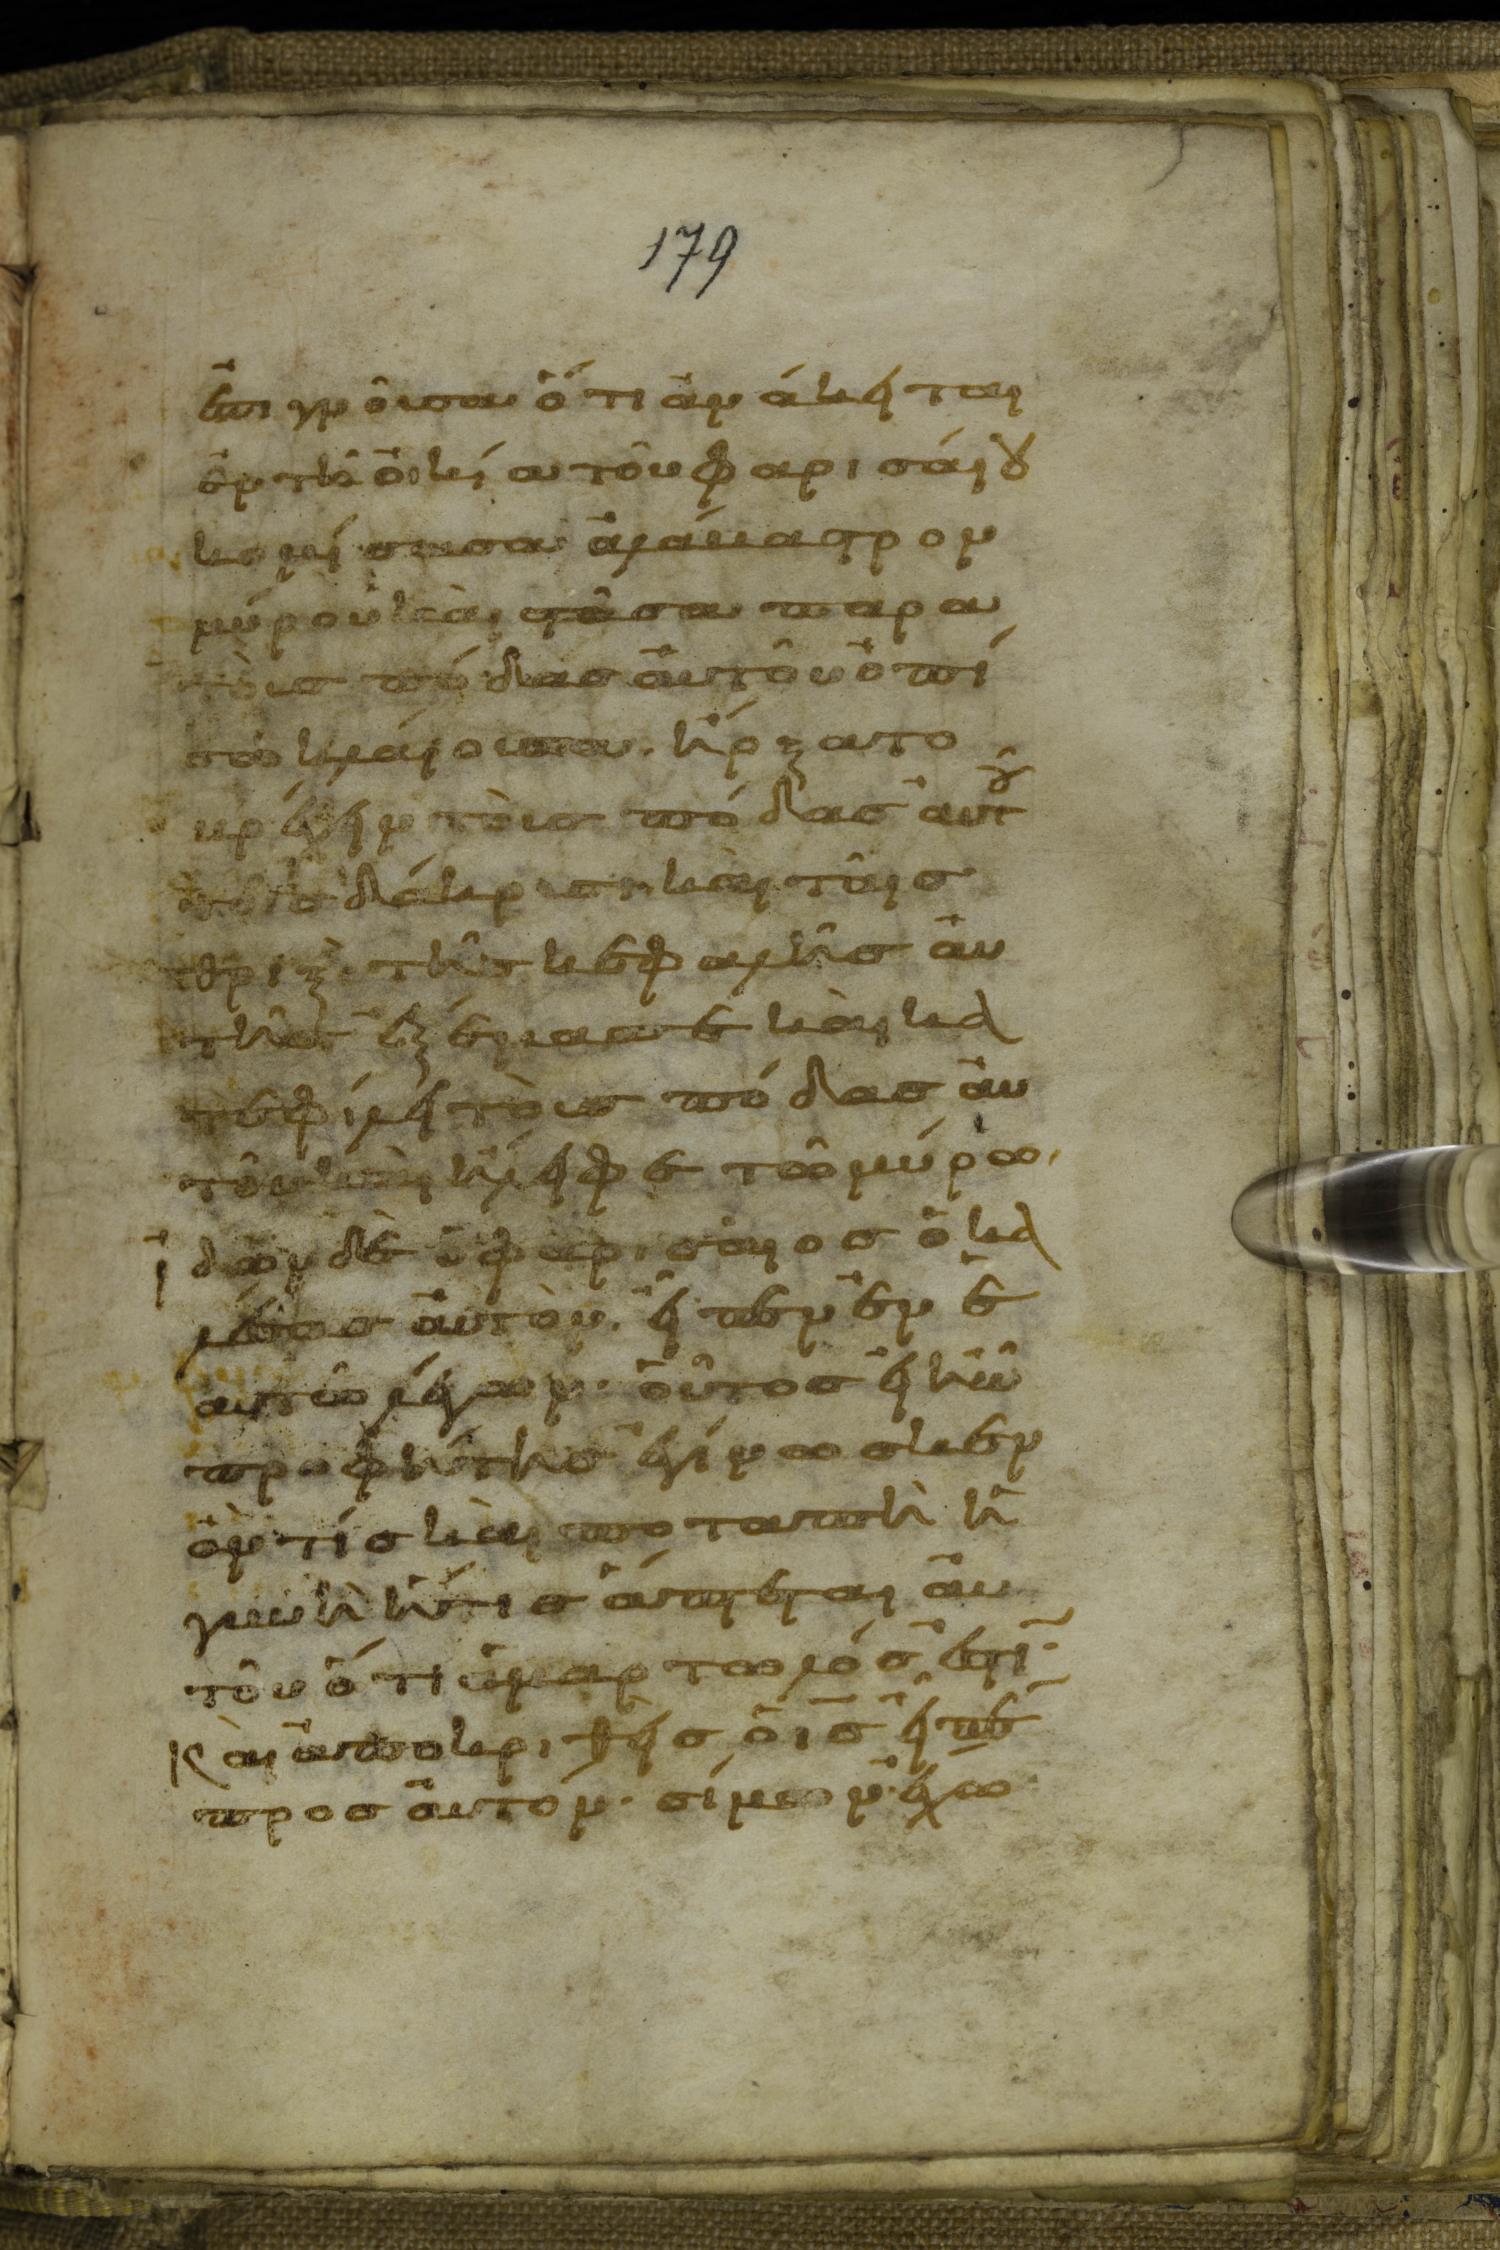 179
ἐπιγνοῦσα ὅτι ἀνάκειται
ἐν τῆ οἰκία τοῦ φαρισαίου
κομίσασα ἀλάβαστρον
μύρου καὶ στᾶσα παρα
τοὺς πόδας αὐτοῦ ὀπί
σω κλαίουσα. ἤρξατο
βρέχειν τοὺς πόδας αὐτοῦ
τοῖς δάκρυσι καὶ ταῖς
θριξὶ τῆς κεφαλῆς αὐ
τῆς ἐξέμασσε καὶ κα
τεφίλει τοὺς πόδας αὐ
τοῦ καὶ ἤλειφε τῶ μύρω.
ἰδὼν δὲ ὁ φαρισαῖος ὁ κα
λέσας αὐτὸν. εἶπεν ἐν ἑ
αυτῶ λέγων· οὗτος εἰ ἦν
προφήτης ἐγίνωσκεν
ἂν τίς καὶ ποταπὴ ἡ
γυνὴ ἥτις ἅπτεται αὐ
τοῦ ὅτι ἁμαρτωλός ἐστι·
Καὶ ἀποκριθεὶς ὁ ις εἶπε
προς αὐτόν· σίμων· ἔχω